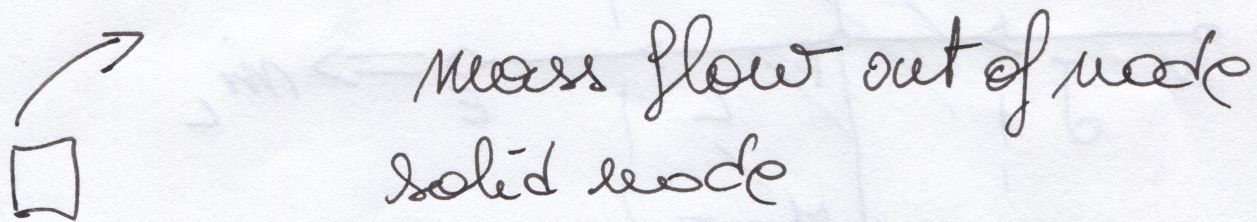 mass flow out of node
solid node